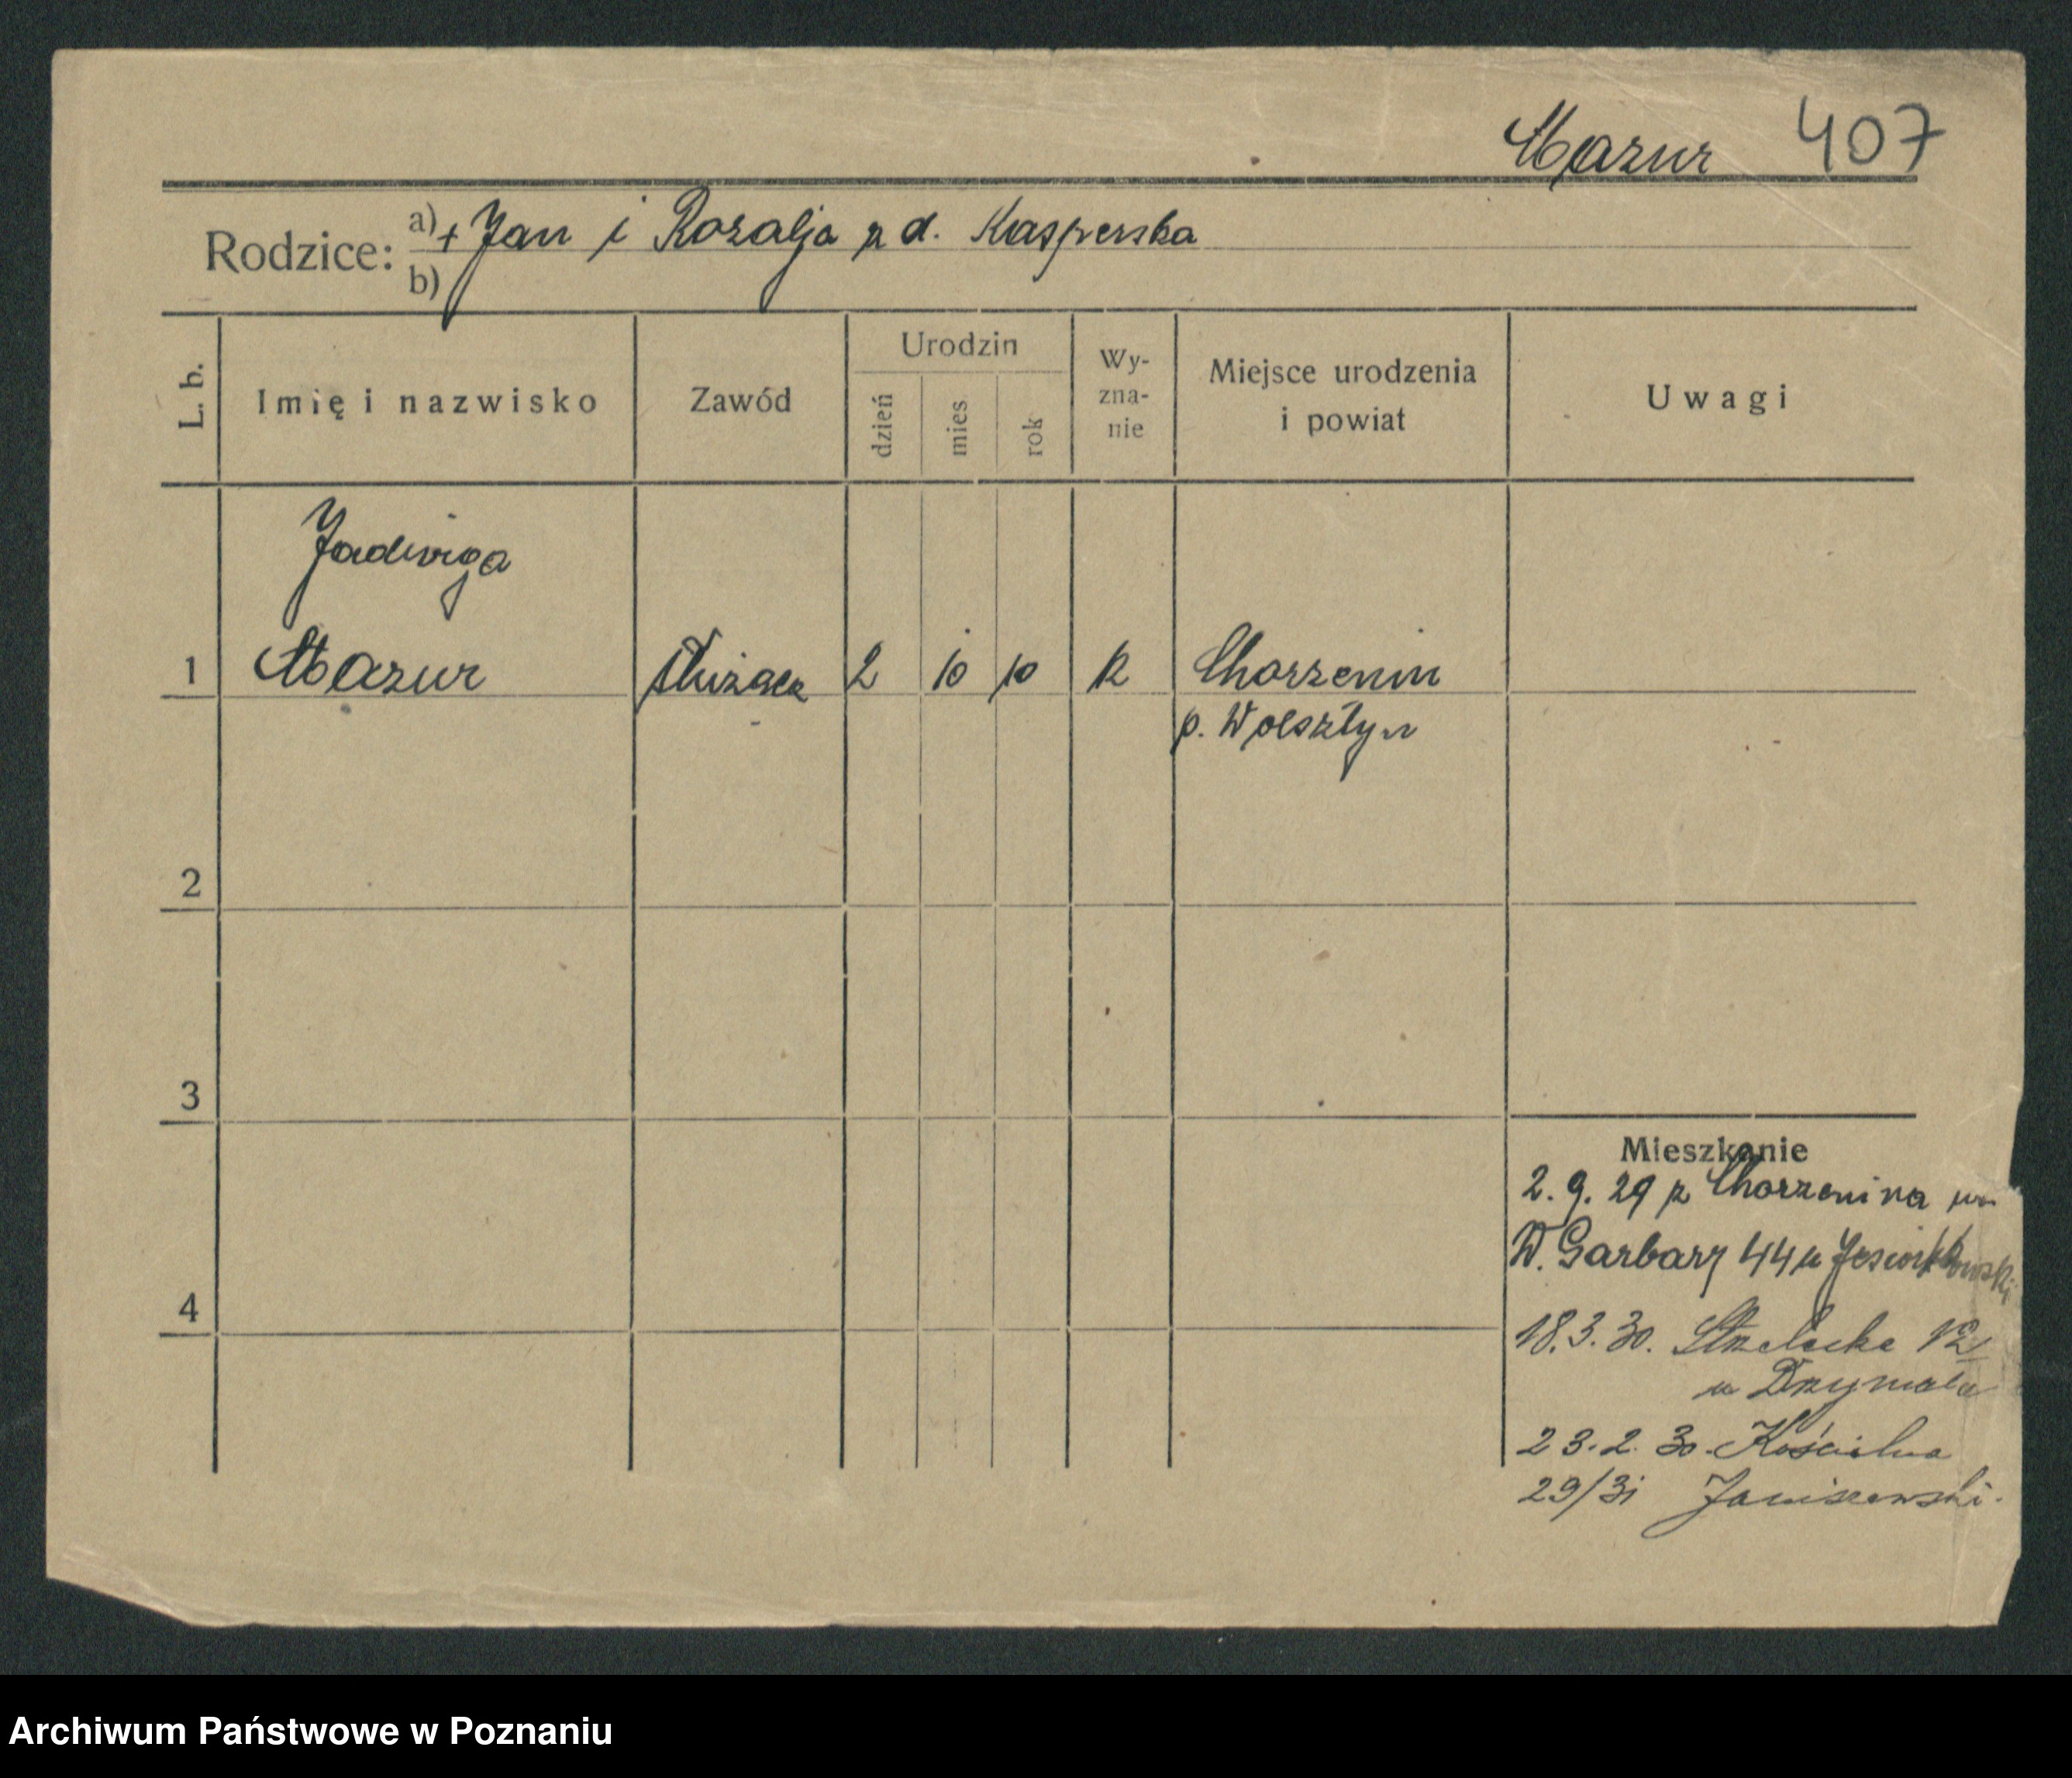 Mazur 407
Rodzice: a) + Jan i Rozalja z d. Kasperska
b)
L. b. Imię i nazwisko Zawód Urodzin dzień mies rok Wy-zna-nie Miejsce urodzenia i powiat Uwagi
Jadwiga
1 Mazur służąca 2 10 10 R Chorzemin
p. Wolsztyn
2
3
Mieszkanie
2. 9. 29 z Chorzemina
W. Garbary 44 u
4
18. 3. 30. Strzelecka 12
u Drzymała
23. 2. 30. Kościelna
29/31 Janiszewski.
Archiwum Państwowe w Poznaniu